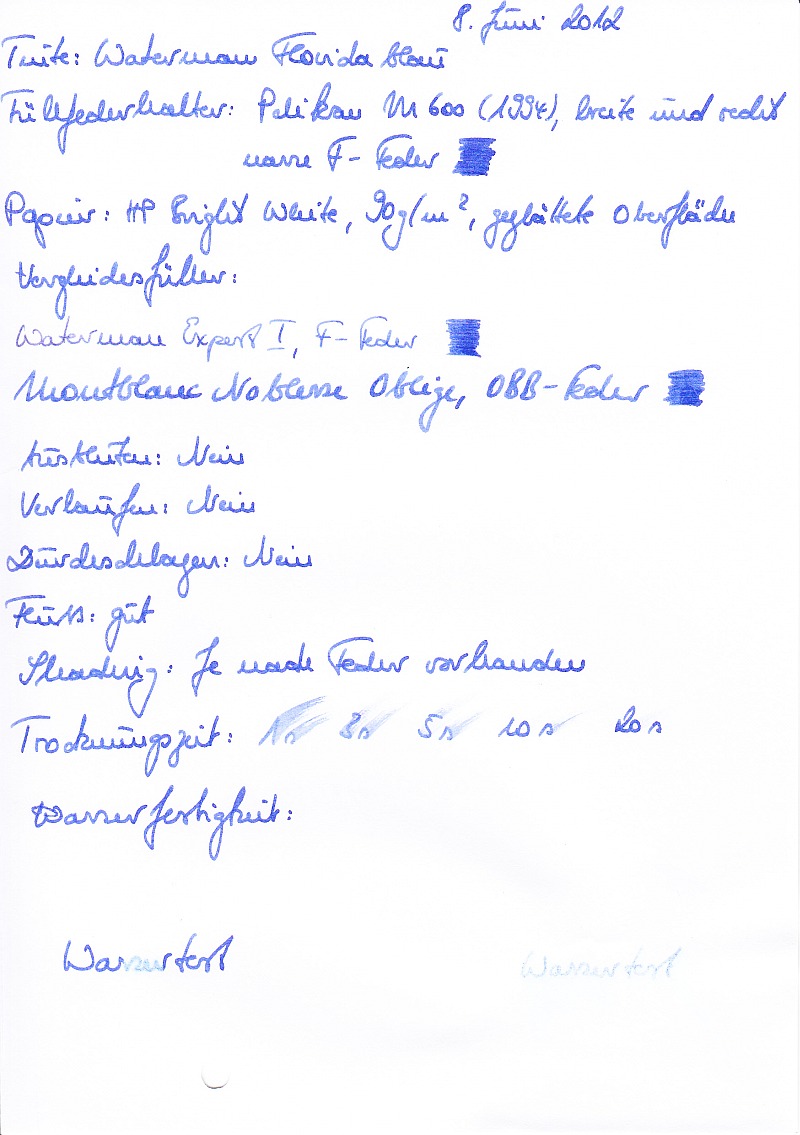 8. Juni 2012
Tinte: Waterman Florida blau
Füllfederhalter: Pelikan M 600 (1994), breite und recht
nasse F-Feder
Papier: HP Bright White, 90g/m², geglättete Oberfläche
Vergleichsfüller:
Waterman Expert I, F-Feder
Montblanc Noblesse Oblige, OBB-Feder
Ausbluten: Nein
Verlaufen: Nein
Durchschlagen: Nein
Fluss: gut
Shading: Je nach Feder vorhanden
Trocknungszeit: 1s 3s 5s 10s 20s
Wasserfestigkeit:
Wassertest Wassertest